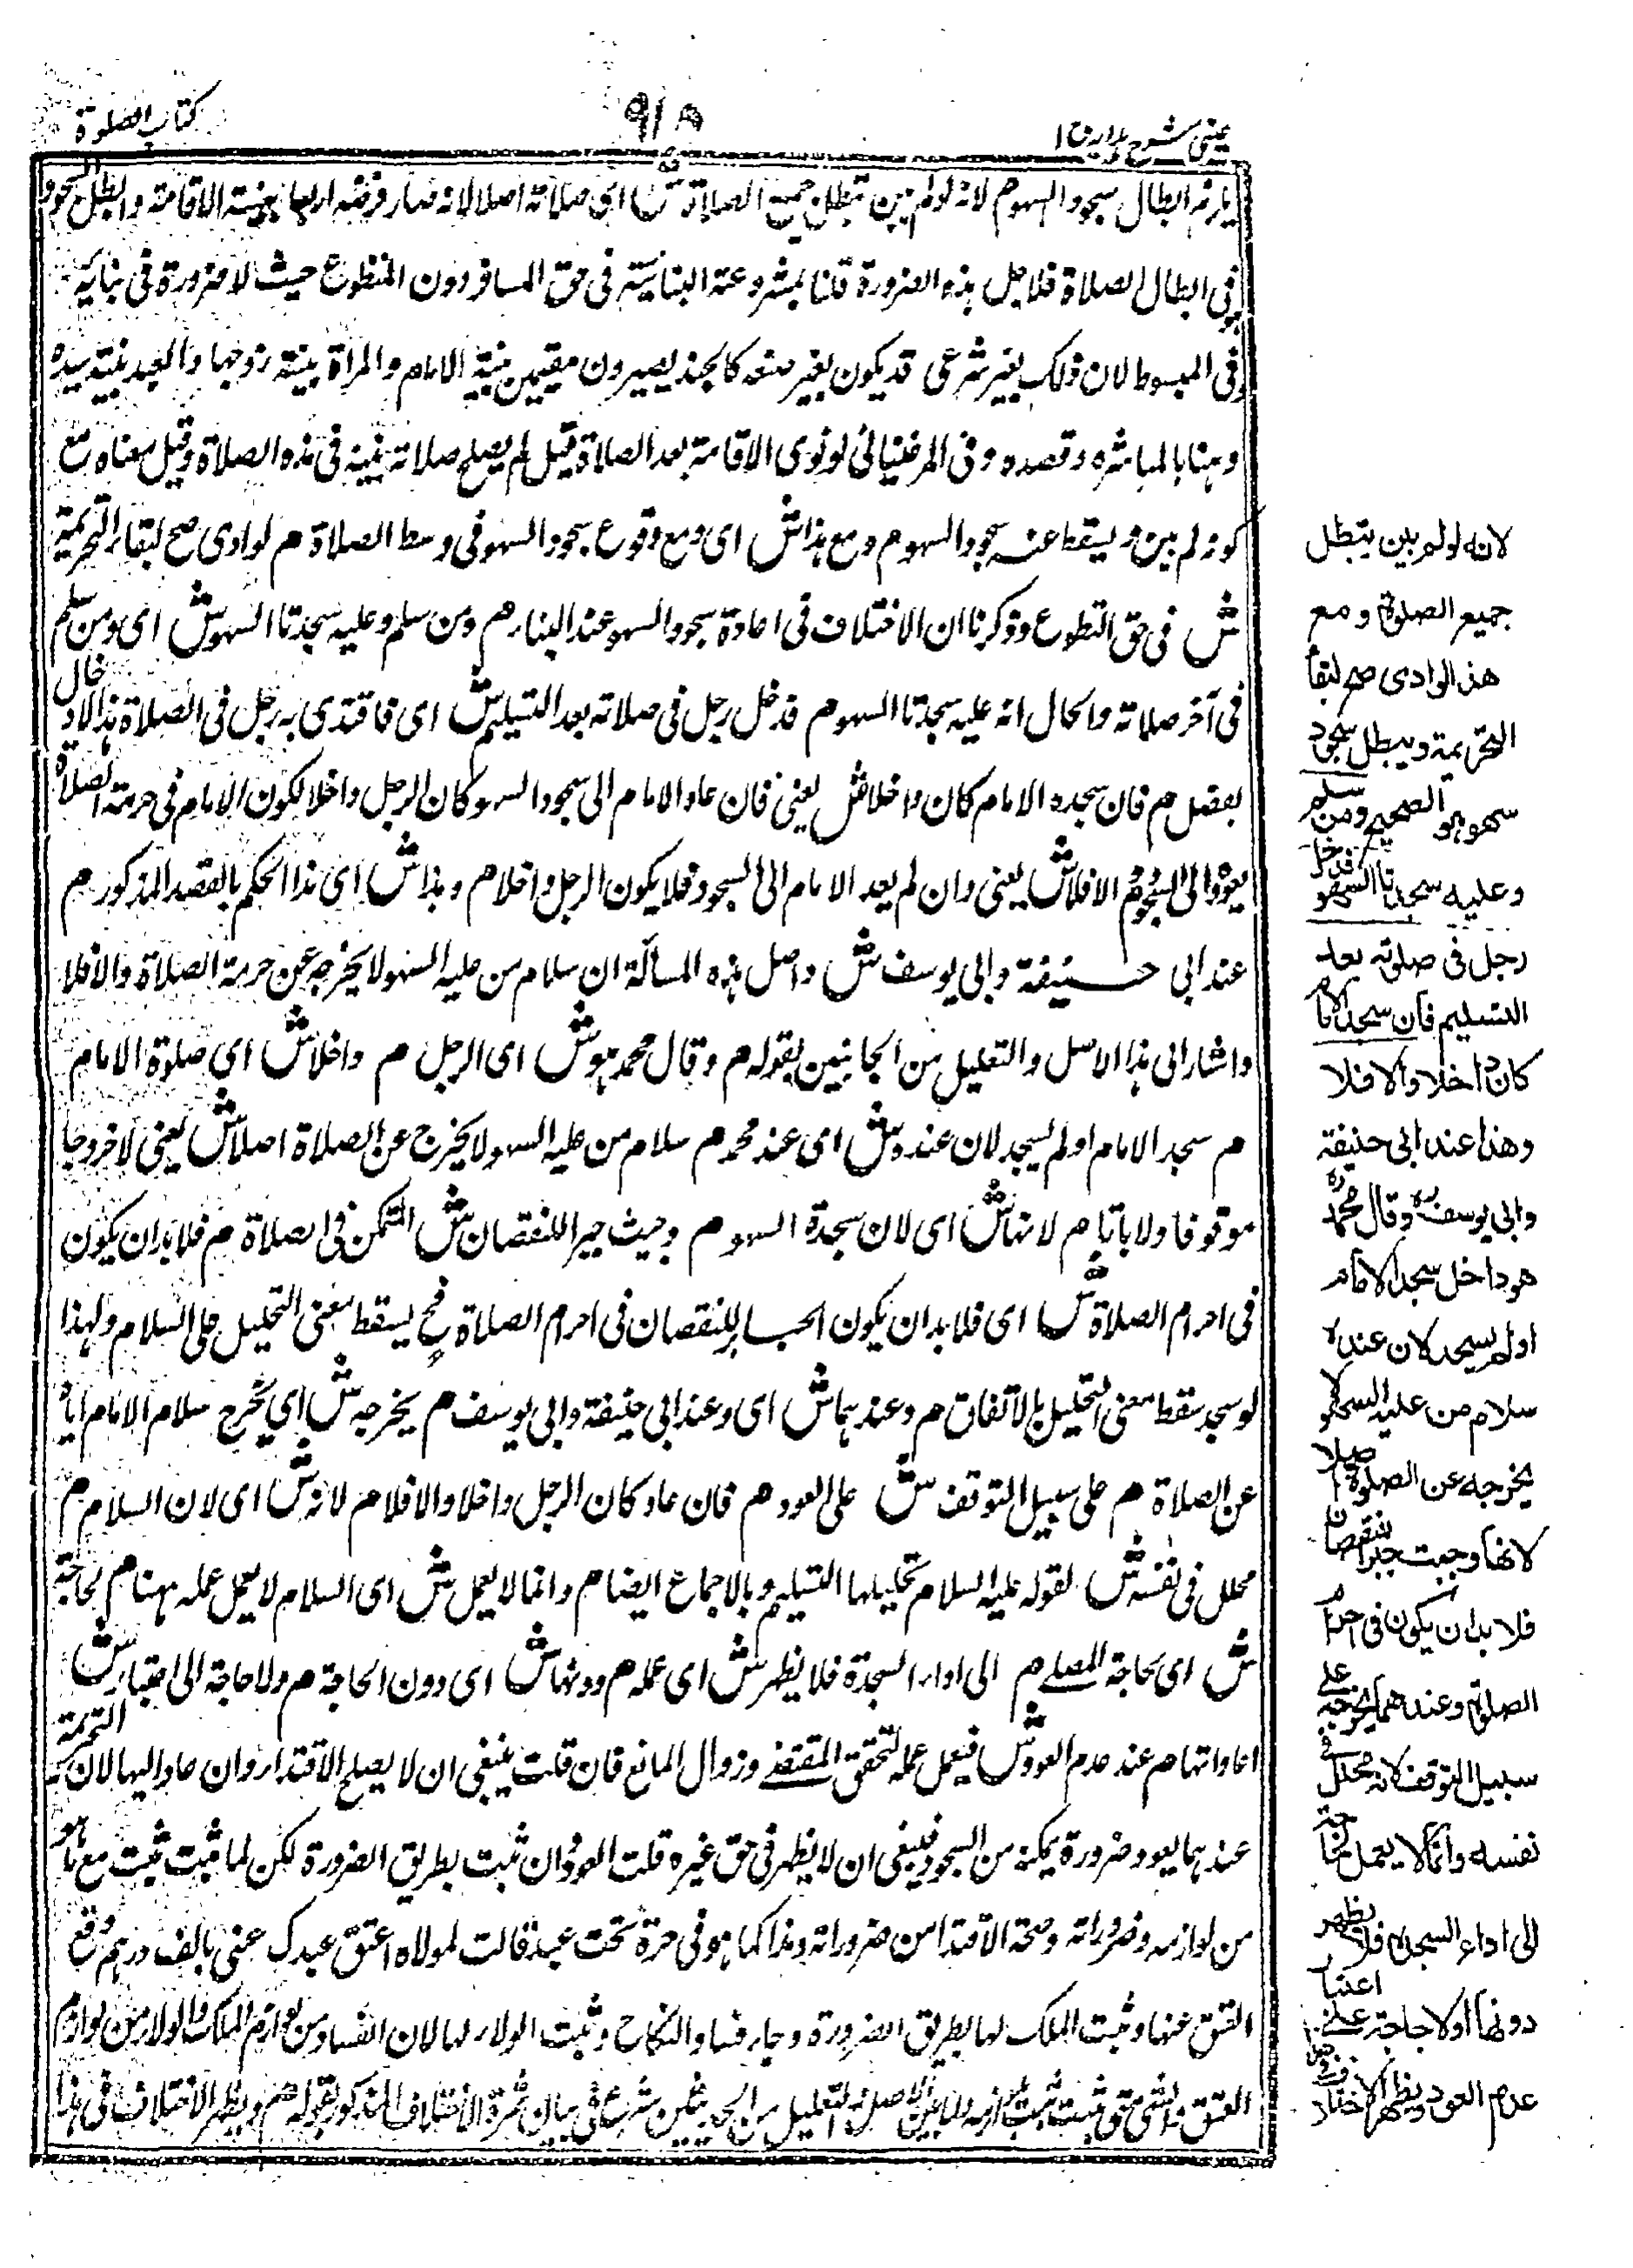 عينى شرح هدايه ج ١
٩١٨
كتاب الصلوة
يلزمه ابطال سجود السهو م لانه لو لم يبن تبطل جميع الصلاة ش اى صلاته اصلا لانه صار فرضه اربعا بنية الاقامة وابطال السجود
فى ابطال الصلاة فلاجل هذه الضرورة قلنا بمشروعية البناء فى حق المسافر دون المتطوع حيث لا ضرورة فى بنائه
وفى المبسوط لان ذلك بغير شرعى قد يكون بغير صنعه كالجند يصيرون مقيمين بنية الامام والمراة بنية زوجها والعبد بنية سيده
وهنا بالمباشره وقصده وفى المرغينانى لو نوى الاقامة بعد الصلاة قيل لم يصلح صلاته بنيته فى هذه الصلاة وقيل معناه مع
كونه لم يبن ويسقط عنه سجود السهو م ومع هذا ش اى ومع وقوع سجود السهو فى وسط الصلاة م لو ادى صح لبقاء التحريمة
ش فى حق التطوع وذكرنا ان الاختلاف فى اعادة سجود السهو عند البناء م ومن سلم وعليه سجدتا السهو ش اى ومن سلم
فى آخر صلاته والحال انه عليه سجدتا السهو م فدخل رجل فى صلاته بعد التسليم ش اى فاقتدى به رجل فى الصلاة هذا الادخال
بفصل م فان سجده الامام كان داخلا ش يعنى فان عاد الامام الى سجود السهو كان الرجل داخلا لكون الامام فى حرمة الصلاة
بعوده الى السجود م والا فلا ش يعنى وان لم يعد الامام الى السجود فلا يكون الرجل داخلا م وهذا ش اى هذا الحكم بالقصد المذكور م
عند ابى حنيفة وابى يوسف ش واصل هذه المسألة ان سلام من عليه السهو لا يخرجه عن حرمة الصلاة والا فلا
واشار الى هذا الاصل والتعليل من الجانبين بقوله م وقال محمد هو ش اى الرجل م داخلا ش اى صلوة الامام
م سجد الامام او لم يسجد لان عنده ش اى عند محمد م سلام من عليه السهو لا يخرج عن الصلاة اصلا ش يعنى لا خروجا
موقوفا ولا باتا م لانها ش اى لان سجدة السهو م وجبت جبرا للنقصان ش المتمكن فى الصلاة م فلا بد ان يكون
فى احرام الصلاة ش اى فلا بد ان يكون الجابر للنقصان فى احرام الصلاة فح يسقط معنى التحليل على السلام ولهذا
لو سجد سقط معنى التحليل بالاتفاق م وعندهما ش اى وعند ابى حنيفة وابى يوسف م يخرجه ش اى يخرج سلام الامام اياه
عن الصلاة م على سبيل التوقف ش على العود م فان عاد كان الرجل داخلا والا فلا م لانه ش اى لان السلام م
محلل فى نفسه ش لقوله عليه السلام تحليلها التسليم وبالاجماع ايضا م وانما لا يعمل ش اى السلام لا يعمل عمله ههنا م لحاجة
ش اى لحاجة المصلى م الى اداء السجدة فلا يظهر ش اى عمله م دونها ش اى دون الحاجة م ولا حاجة الى اعتبار ش
اعادتها م عند عدم العود ش فيعمل عمله لتحقق المقتضى وزوال المانع فان قلت ينبغى ان لا يصلح الاقتداء وان عاد اليها لان التحريمة
عندهما يعود ضرورة يمكنه من السجود فينبغى ان لا يظهر فى حق غيره قلت العود وان ثبت بطريق الضرورة لكن لما ثبت ثبت مع ما هو
من لوازمه وضروراته وصحة الاقتدا من ضروراته وهذا كما هو فى حرة تحت عبد قالت لمولاه اعتق عبدك عنى بالف درهم وقع
العتق عنها وثبت الملك لها بطريق الضرورة وجاء فساد النكاح وثبت الولاء لها لان الفساد من لوازم الملك والولاء من لوازم
العتق والشئ متى ثبت ثبت بلوازمه ولما بين الاصل والتعليل من الجانبين شرع فى بيان ثمرة الاختلاف المذكور بقوله م ويظهر الاختلاف فى هذا
لانه لو لم يبن يبطل
جميع الصلوة ومع
هذا لو ادى صح لبقا
التحريمة ويبطل سجود
سهو هو الصحيح ومن سلم
وعليه سجدتا السهو فدخل
رجل فى صلوته بعد
التسليم فان سجد الامام
كان داخلا والا فلا
وهذا عند ابى حنيفة
وابى يوسف ره وقال محمد ره
هو داخل سجد الامام
او لم يسجد لان عنده
سلام من عليه السهو لا
يخرجه عن الصلوة اصلا
لانها وجبت جبرا للنقصان
فلا بد ان يكون فى احرام
الصلوة وعندهما يخرجه على
سبيل التوقف لانه محلل فى
نفسه وانما لا يعمل لحاجته
الى اداء السجدة فلا يظهر
دونها ولا حاجة على اعتبار
عدم العود ويظهر الاختلاف فى